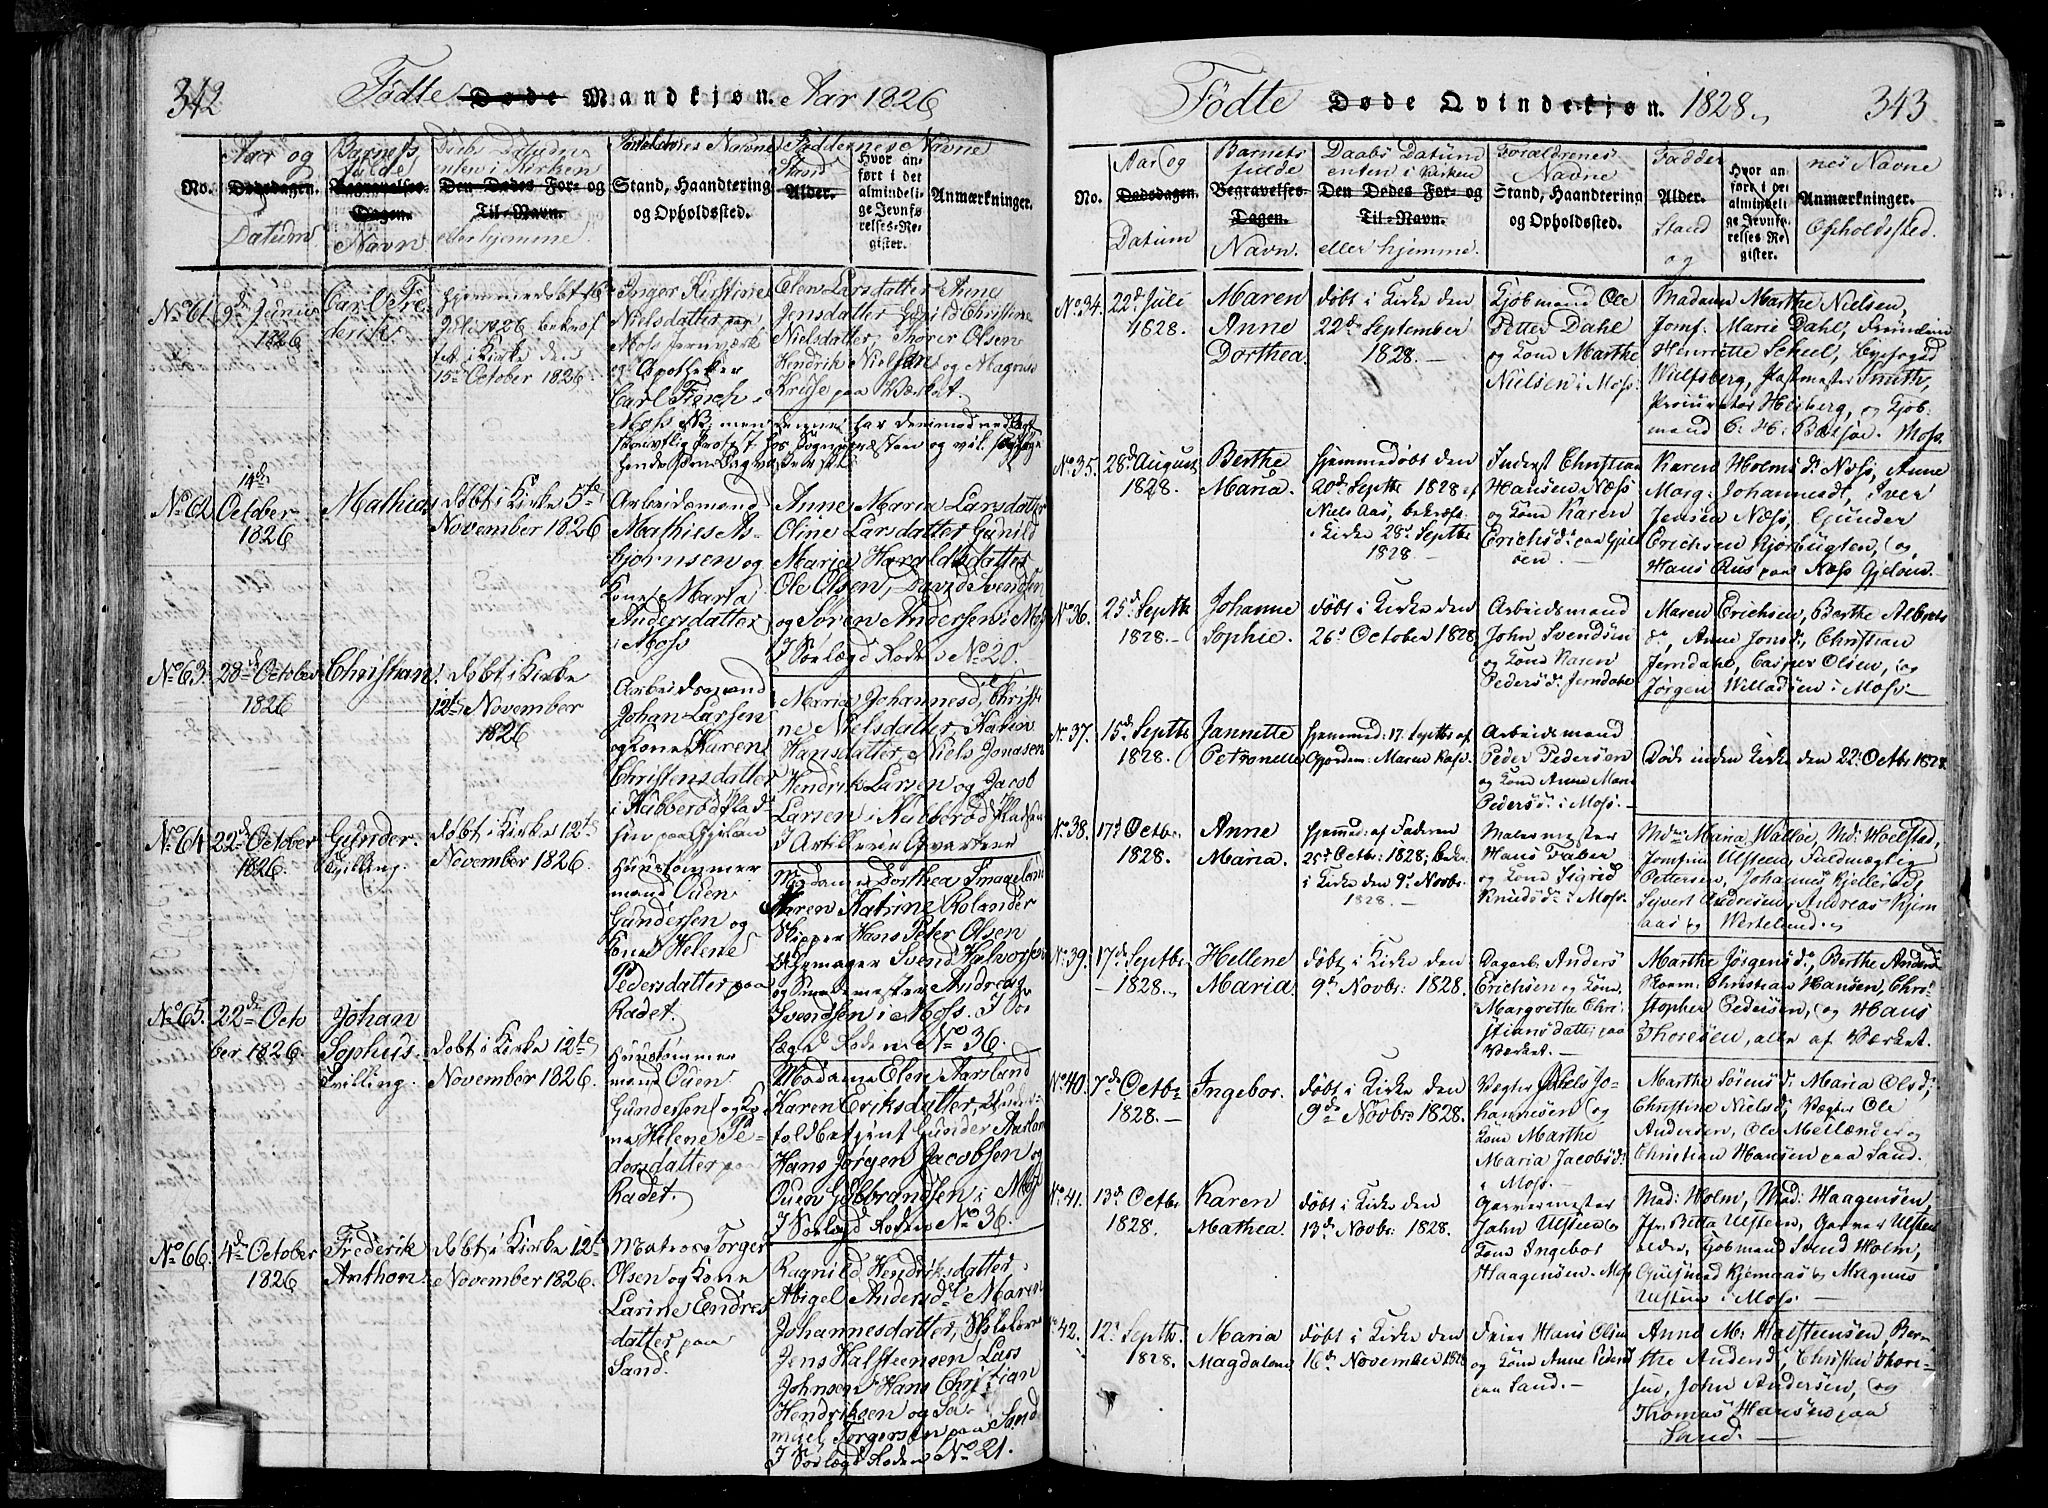 342
Fødte Døde Mandkjøn. Aar 1826
No.
Aar og
Dødsdagen.
Datum
Barnets
fulde
Begravelses-
Dagen.
Navn
Daabs Datum
enten i Kirken
Den Dødes For- og
Til-Navn.
eller hjemme.
Forældrenes Navne
Stand, Haandtering
og Opholdssted.
Faddernes Navne
Stand
Alder.
Hvor an-
ført i det
almindeli-
ge Jevnfø-
relses-Re-
gister.
Anmærkninger.
No 61.
9de Junius
1826
Carl Fre
derik
hjemmedøbt 16
Julii 1826 bekræf
tet i Kirke den
15de October 1826.
Inger Kirstine
Nielsdatter paa
Moss Jernværk
og Apotheker
Carl
Moss NB: men
Elen Larsdatter Anne
Jensdatter Christine
Nielsdatter, Thorer Olsen
Hendrik Nielsen og Magnus
Kruse paa Værket.
denne har derimod nedlagt
skrivtlig Protest hos Sognepræsten og vil
No 62
14de
October
1826
Mathias
døbt i Kirke 5te
November 1826
Arbeidsmand
Mathies As-
bjørnsen og
Kone Marta
Andersdatter
i Moss
Anne Maria Larsdatter
Oline Larsdatter Gunild
Maria Haraldsdatter
Ole Olsen, David Svendsen
og Søren Andersen i Moss
I Sørlægd Roden No 20.
No 63
28de October
1826
Christian.
døbt i Kirke
12te November
1826
Arbeidsmand
Johan Larsen
og Kone Karen
Christensdatter
i Kubberød Plad-
sen paa Gjeløn
Maria Johannesd, Christi
ne Nielsdatter, Karen
Hansdatter, Niels Jonasen
Hendrik Larsen og Jacob
Larsen i Kubberød Pladsen
I Artillerie Qvarteer
No 64
22de October
1826.
Gunder.
Tvilling.
døbt i Kirke 12te
November 1826.
Huustømmer
mand Oden
Gundersen og
Kone Helene
Pedersdatter paa
Radet.
Madame Dorthea Smaaglæni
Maren Katrine Rolander
Skipper Hans Peter Olsen
Uhrmager Svend Halvorsen
og Smedemester Andreas
Svendsen i Moss. I Sør
lægd Roden No 36.
No 65.
22de Octo
ber 1826.
Johan
Sophus.
Tvilling.
døbt i Kirke 12te
November 1826.
Huustømmer
mand Oden
Gundersen og Ko
ne Helene Pe-
dersdatter paa
Radet.
Madame Elen Aarsland
Karen Eriksdatter,
foldbetjent Gunder Aarslan
Hans Jørgen Jacobsen og
Ouen Gulbrandsen i Moss
I Sørlægd Roden No 36.
No 66.
4de October
1826
Frederik
Anthon.
døbt i Kirke 12te
November 1826.
Matros Torger
Olsen og Kone
Larine Endres
datter paa
Sand.
Ragnild Hendriksdatter,
Abigel Andersd Maren
Johannesdatter, Skolelærer
Jens Halsteensen Lars
Johnsen Hans Christian
Hendriksen og Sa-
muel Torgersen paa Sand
I Sørlægd Roden No 21.
Fødte Døde Qvindekjøn. 1828.
343
No.
Aar og
Dødsdagen.
Datum
Barnets
fulde
Begravelses-
Dagen.
Navn.
Daabs Datum
enten i Kirken
Den Dødes For- og
Til-Navn.
eller hjemme.
Forældrenes
Navne
Stand, Haandtering
og Opholdssted.
Fadder
Alder.
Stand
og
Hvor an-
ført i det
almindeli-
ge Jevnfø-
relses Re-
gister.
nes Navne
Anmærkninger.
Opholdssted.
No 34.
22de Juli
1828.
Maren
Anne
Dorthea.
døbt i Kirke den
22de September
1828.
Kjøbmand Ole
Petter Dahl
og Kone Marthe
Nielsen i Moss.
Madam Marthe Nielsen,
Jomf: Marie Dahl, Frøiden
Henriette Scheel, Byefoged
Wulfsberg, Postmester Smith,
Procurator Heiberg, og Kjøb:
mand C: H: Moss.
No 35.
28de August
1828.
Berthe
Maria.
hjemmedøbt den
20de Septbr 1828 af
Niels Aas, bekræft:
i Kirke 28de Septbr
1828
Inderst Christian
Hansen Næss
og Kone Karen
Erichsd: paa Gjel
øen.
Karen Holms d: Næss, Anne
Marg: Johannesd, Iver
Jensen Næss, Gunder
Erichsen Kjørbugten, og
Hans Aas paa Næss Gjeløen.
No 36.
25de Septbr
1828.
Johanne
Sophie.
døbt i Kirke den
26de October 1828.
Arbeidsmand
John Svendsen
og Kone Karen
Pedersd: Jerndahl
Maren Erichsen, Berthe Alberts
d:, Anne Jonsd:, Christian
Jerndahl, Casper Olsen, og
Jørgen Willadsen i Moss.
No 37.
15de Septbr
1828.
Jannette
Petronelle
hjemmed: 17 Septbr af
Gjordem: Maren Moss.
Arbeidsmand
Peder Pedersen
og Kone Anne Marie
Pedersd: i Moss.
Døde inden Kirke den 22de Octbr 1828.
No 38.
17de Octbr.
1828.
Anne
Maria.
hjemmed: af Faderen
25de Octbr: 1828, bekr:
i Kirke den 9de Novbr:
1828.
Malermester
Hans Faber
og Kone Sigrid
Knudsd: i Moss.
Mdm Maria Md: Hoelsted,
Jomfrue Ulsteen, Fuldmægtig
Pettersen, Johannes Kjellerød,
Sivert Andresen, Andreas Kjem
aas og Westelund.
No 39.
17de Septbr:
1828.
Hellene
Maria.
døbt i Kirke den
9de Novbr: 1828.
Dagarb: Anders
Erichsen og Kone
Margrethe Chri-
stiansdatter paa
Værket.
Marthe Jørgensd:, Berthe Andersd
Christian Hansen, Chri-
stopher Pedersen, og Hans
Thoresen, alle af Værket.
No 40.
7de Octbr
1828.
Ingebor.
døbt i Kirke den
9de Novbr: 1828.
Vægter Niels Jo-
hannesen og
Kone Marthe
Maria Jacobsd:
i Moss.
Marthe Sørensd: Maria Olsd:,
Christine Nielsd:, Vægter Ole
Andersen, Ole Mellænder og
Christian Hansen paa Sand.
No 41.
13de Octbr
1828.
Karen
Mathea.
døbt i Kirke den
13de Novbr: 1828.
Garvermester
John Ulsteen og
Kone Ingebor
Haagensen. Moss
Mad: Holm, Mad: Haagensen,
Jfr: Bitta Ulsteen, Garver Ulsteen
Kjøbmand Svend Holm,
Guldsmed Kjemaas og Magnus
Ulsteen i Moss.
No 42.
12te Septbr.
1828.
Maria
Magdalene
døbt i Kirke den
16de November 1828
Feier Hans Olsen
og Kone Anne Pedersd
paa Sand.
Anne M: Halsteensen, Ber-
the Andersd:, Christen Thore-
sen, John Andersen, og
Thomas Hansen paa
Sand.